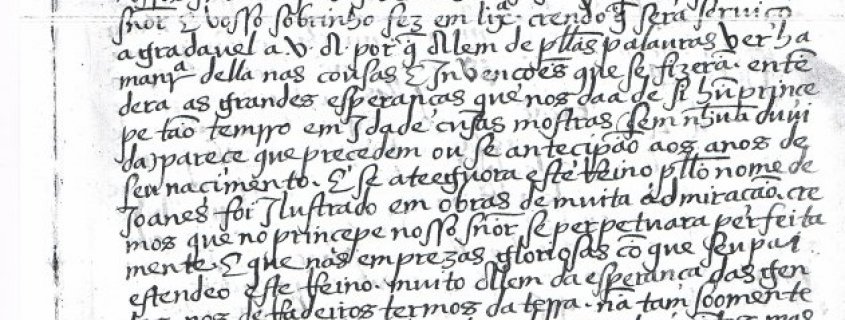 sñor E vosso sobrinho fez em lixª. crendo q̃ será serviço
agradavel a V. A. por q̃ Allem de pllas palauras ver ha
manrª della nas cousas E Invenções que se fizerã. entẽ
dera as grandes esperanças que nos daa de si hũ prince
pe tão tenrro em Idade cujas mostras (sem nhũa duui
da) parece que precedem ou se antecipão aos anos de
seu nacimento. E se ateegora este Reino pllo nome de
Joanes foi Ilustrado em obras de muita admiração. cre
mos que no principe nosso sñor se perpetuara perfeita
mente. E que nas emprezas gloriosas cõ que seu pai
estendeo este Reino. muito Allem da esperança das gen
tes nos derradeiros termos da terra. nã tam soomente